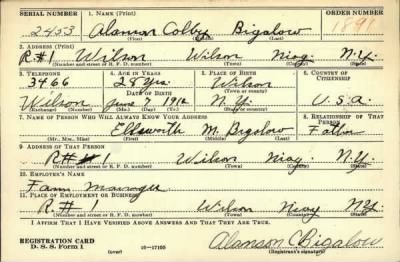 SERIAL NUMBER 1. NAME (Print) ORDER NUMBER
2453 Alanson Colby Bigalow 1891
2. ADDRESS (Print)
R#1 Wilson Wilson Niag. N.Y.
(Number and street or R. F. D. number) (Town) (County) (State)
3. TELEPHONE 4. AGE IN YEARS 5. PLACE OF BIRTH 6. COUNTRY OF CITIZENSHIP
3466 28 Yrs. Wilson
DATE OF BIRTH (Town or county)
Wilson June 7 1912 N.Y. U.S.A.
(Exchange) (Number) (Mo.) (Day) (Yr.) (State or country)
7. NAME OF PERSON WHO WILL ALWAYS KNOW YOUR ADDRESS 8. RELATIONSHIP OF THAT PERSON
Ellsworth M. Bigalow Father
(Mr., Mrs., Miss) (First) (Middle) (Last)
9. ADDRESS OF THAT PERSON
R## 1 Wilson Niag. N.Y.
(Number and street or R. F. D. number) (Town) (County) (State)
10. EMPLOYER'S NAME
Farm Manager
11. PLACE OF EMPLOYMENT OR BUSINESS
R.# 1 Wilson Niag N.Y.
(Number and street or R. F. D. number) (Town) (County) (State)
I AFFIRM THAT I HAVE VERIFIED ABOVE ANSWERS AND THAT THEY ARE TRUE.
REGISTRATION CARD
D. S. S. Form 1 (over) 16—17105 Alanson C Bigalow
(Registrant's signature)